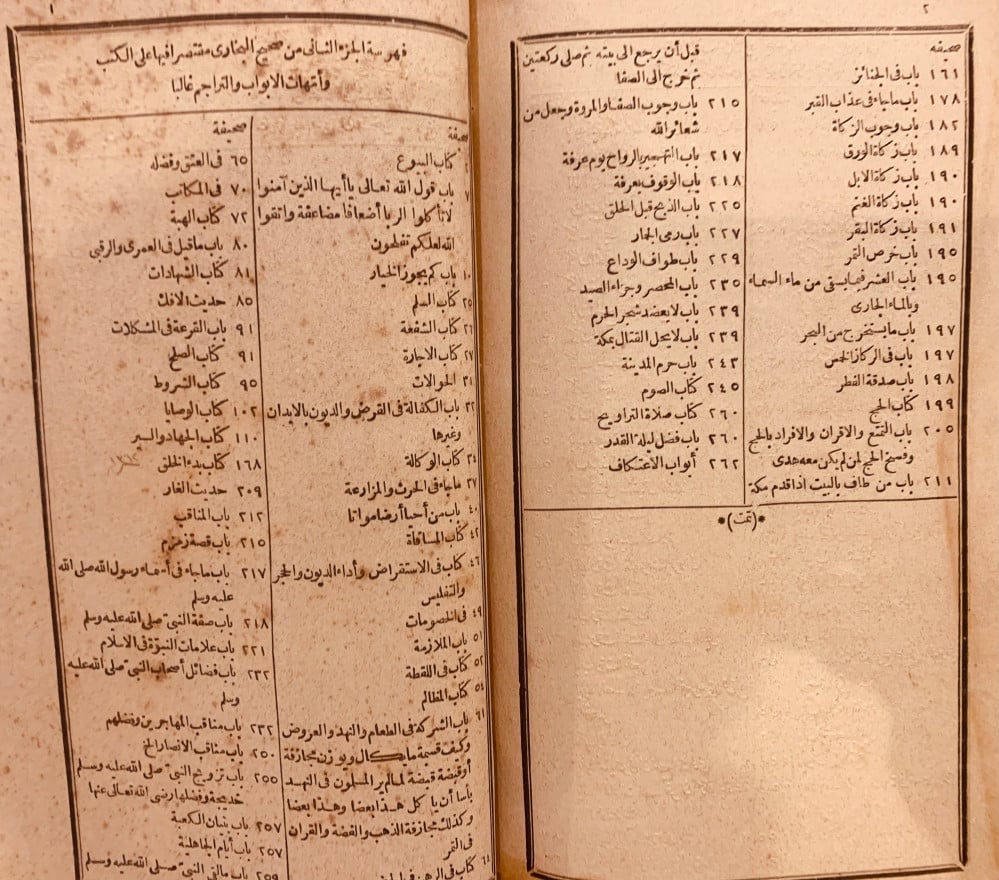 ٢
صحيفه
١٦١ باب فى الجنائز
١٧٨ باب ماجاء فى عذاب القبر
١٨٢ باب وجوب الزكاة
١٨٩ باب زكاة الورق
١٩٠ باب زكاة الابل
١٩٠ باب زكاة الغنم
١٩١ باب زكاة البقر
١٩٥ باب خرص التمر
١٩٥ باب العشر فيما يسقى من ماء السماء
وبالماء الجارى
١٩٧ باب ما يستخرج من البحر
١٩٧ باب فى الركاز الخمس
١٩٨ باب صدقة الفطر
١٩٩ كتاب الحج
٢٠٥ باب التمتع والاقران والافراد بالحج
وفسخ الحج لمن لم يكن معه هدى
٢١١ باب من طاف بالبيت اذا قدم مكة
قبل أن يرجع الى بيته ثم صلى ركعتين
ثم خرج الى الصفا
٢١٥ باب وجوب الصفا والمروة وجعل من
شعائر الله
٢١٧ باب التهجير بالرواح يوم عرفة
٢١٨ باب الوقوف بعرفة
٢٢٥ باب الذبح قبل الحلق
٢٢٧ باب رمى الجمار
٢٢٩ باب طواف الوداع
٢٣٥ باب المحصر وجزاء الصيد
٢٣٩ باب لا يعضد شجر الحرم
٢٣٩ باب لا يحل القتال بمكة
٢٤٣ باب حرم المدينة
٢٤٥ كتاب الصوم
٢٦٠ كتاب صلاة التراويح
٢٦٠ باب فضل ليلة القدر
٢٦٢ أبواب الاعتكاف
*(تمت)*
١
فهرسة الجزء الثانى من صحيح البخارى مقتصرا فيها على الكتب
وأمّهات الابواب والتراجم غالبا
صحيفة
كتاب البيوع
٧ باب قول الله تعالى يا أيها الذين آمنوا
لا تأكلوا الربا أضعافا مضاعفة واتقوا
الله لعلكم تفلحون
١٠ باب كم يجوز الخيار
٢٥ كتاب السلم
٢٦ كتاب الشفعة
٢٧ كتاب الاجارة
٣١ الحوالات
٣٢ باب الكفالة فى القرض والديون بالابدان
وغيرها
٣٤ كتاب الوكالة
٣٧ ماجاء فى الحرث والمزارعة
٤٠ باب من أحيا أرضا مواتا
٤٢ كتاب المساقاة
٤٦ كتاب فى الاستقراض وأداء الديون والحجر
والتفليس
٤٩ فى الخصومات
٥١ باب الملازمة
٥٢ كتاب فى اللقطة
٥٤ كتاب المظالم
٦١ باب الشركة فى الطعام والنهد والعروض
وكيف قسمة ما يكال ويوزن مجازفة
أو قبضة قبضة لما لم ير المسلمون فى النهد
بأسا أن يأكل هذا بعضا وهذا بعضا
وكذلك مجازفة الذهب والفضة والقران
فى التمر
٦٤ كتاب فى الرهن
صحيفة
٦٥ فى العتق وفضله
٧٠ فى المكاتب
٧٢ كتاب الهبة
٨٠ باب ما قيل فى العمرى والرقبى
٨١ كتاب الشهادات
٨٥ حديث الافك
٩١ باب القرعة فى المشكلات
٩١ كتاب الصلح
٩٥ كتاب الشروط
١٠٢ كتاب الوصايا
١١٠ كتاب الجهاد والسير
١٦٨ كتاب بدء الخلق
٢٠٩ حديث الغار
٢١٢ باب المناقب
٢١٥ باب قصة زمزم
٢١٧ باب ماجاء فى أسماء رسول الله صلى الله
عليه وسلم
٢١٨ باب صفة النبىّ صلى الله عليه وسلم
٢٢١ باب علامات النبوّة فى الاسلام
٢٣٢ باب فضائل أصحاب النبىّ صلى الله عليه
وسلم
٢٣٢ باب مناقب المهاجرين وفضلهم
٢٥٠ باب مناقب الانصار الخ
٢٥٥ باب تزويج النبىّ صلى الله عليه وسلم
خديجة وفضلها رضى الله تعالى عنها
٢٥٧ باب بنيان الكعبة
٢٥٧ باب أيام الجاهلية
٢٥٩ باب مالقى النبىّ صلى الله عليه وسلم